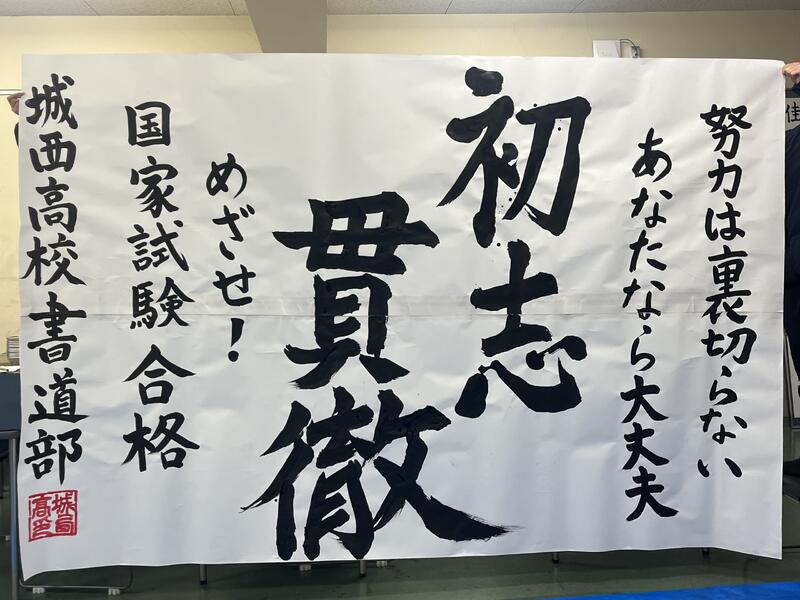 努力は裏切らない
あなたなら大丈夫
初志
貫徹
めざせ！
国家試験合格
城西高校書道部